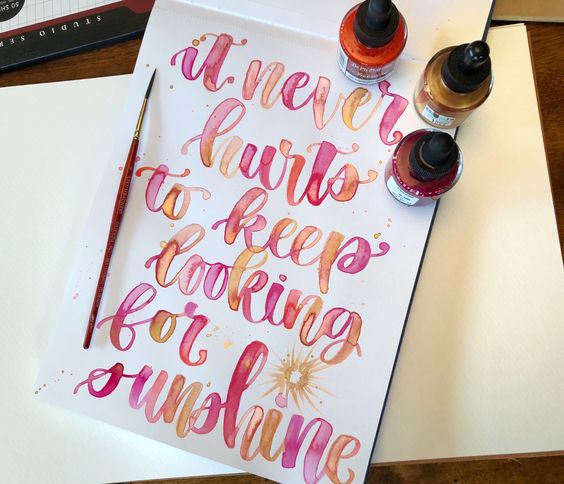 50 SH
STUDIO SER
it never
hurts
to keep
looking
for
sunshine